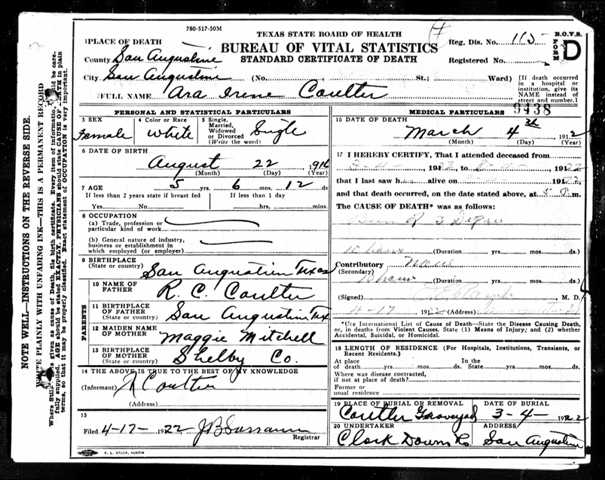 780-517-50M
TEXAS STATE BOARD OF HEALTH
BUREAU OF VITAL STATISTICS
STANDARD CERTIFICATE OF DEATH
Reg. Dis. No. 115
Registered No.
B.O.V.S.
FORM
D
1 PLACE OF DEATH
County San Augustine
City San Augustine (No. St. Ward)
(If death occurred in a hospital or institution, give its NAME instead of street and number.)
2 FULL NAME Ara Irene Coulter
9438
PERSONAL AND STATISTICAL PARTICULARS
3 SEX Female
4 Color or Race White
5 Single, Married, Widowed or Divorced (Write the word) Single
6 DATE OF BIRTH
August 22 1916
(Month) (Day) (Year)
7 AGE 5 yrs. 6 mos. 12 ds.
If less than 2 years state if breast fed
If less than 1 day
Yes No hrs. min.
8 OCCUPATION
(a) Trade, profession or particular kind of work
(b) General nature of industry, business or establishment in which employed (or employer)
9 BIRTHPLACE
(State or country) San Augustine Texas
PARENTS
10 NAME OF FATHER R. C. Coulter
11 BIRTHPLACE OF FATHER
(State or country) San Augustine Tex
12 MAIDEN NAME OF MOTHER Maggie Mitchell
13 BIRTHPLACE OF MOTHER
(State or country) Shelby Co.
14 THE ABOVE IS TRUE TO THE BEST OF MY KNOWLEDGE
(Informant) Coulter
(Address)
15
Filed 4-17-1922
Registrar
MEDICAL PARTICULARS
16 DATE OF DEATH
March 4 1922
(Month) (Day) (Year)
17 I HEREBY CERTIFY, That I attended deceased
from
that I last saw h alive on
and that death occurred, on the date stated above, at m.
The CAUSE OF DEATH* was as follows:
(Duration
Contributory
(Secondary)
(Duration
(Signed) M. D.
*Use International List of Causes of Death—State the Disease Causing Death, or, in deaths from Violent Causes, State (1) Means of Injury; and (2) whether Accidental, Suicidal, or Homicidal.
18 LENGTH OF RESIDENCE (For Hospitals, Institutions, Transients, or Recent Residents.)
At place of death yrs. mos. ds.
In the State yrs. mos. ds.
Where was disease contracted, if not at place of death?
Former or usual residence
19 PLACE OF BURIAL OR REMOVAL DATE OF BURIAL
Coulter Graveyard 3-4-1922
20 UNDERTAKER ADDRESS
Clark Downs Co San Augustine
NOTE WELL—INSTRUCTIONS ON THE REVERSE SIDE.
WRITE PLAINLY WITH UNFADING INK—THIS IS A PERMANENT RECORD